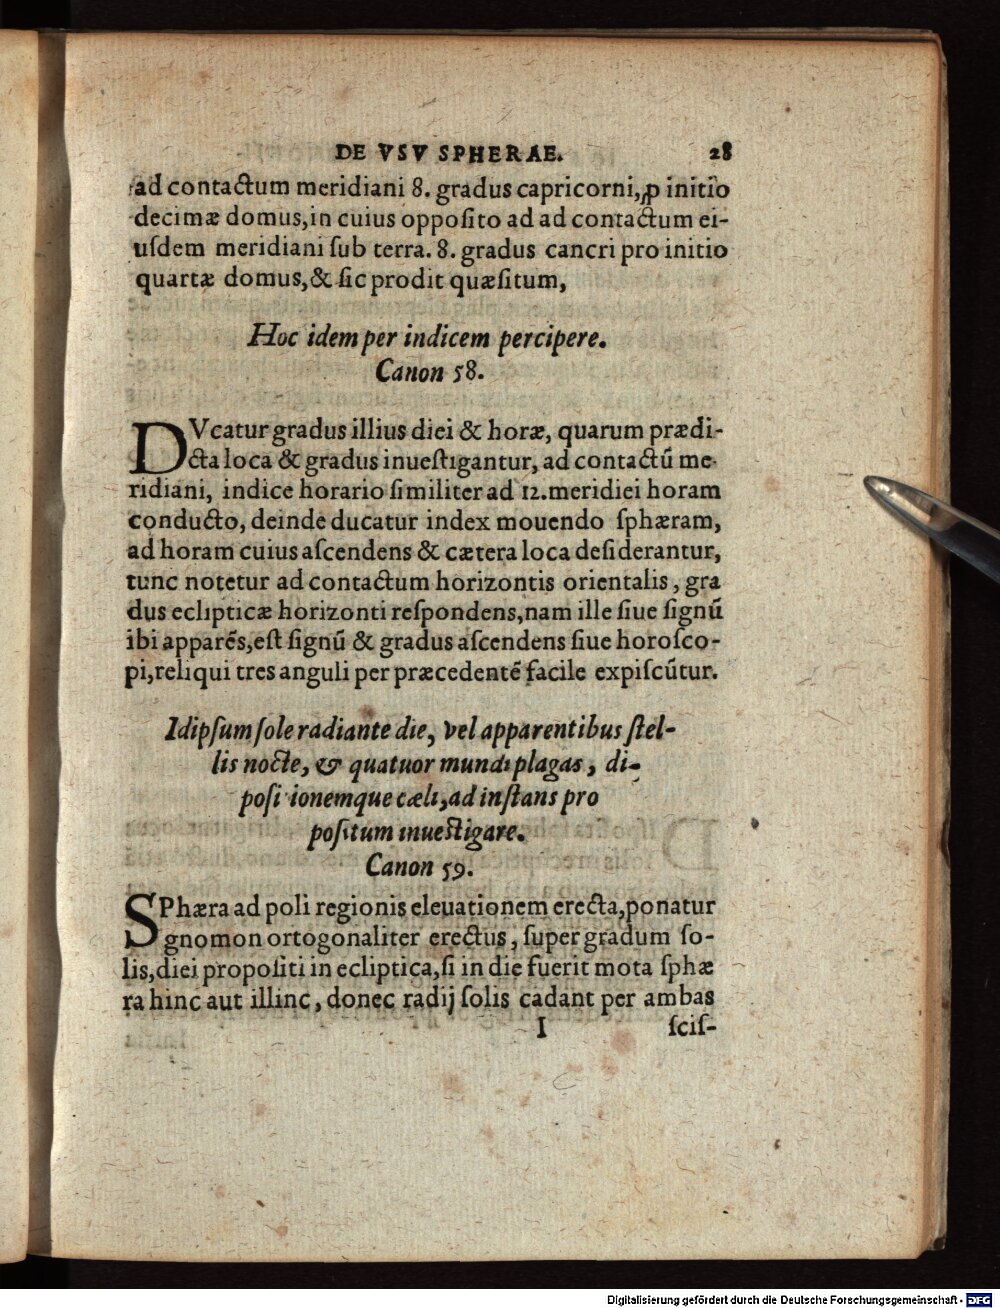 DE VSV SPHERAE. 28
ad contactum meridiani 8. gradus capricorni, ꝓ initio
decimæ domus, in cuius oppoſito ad ad contactum ei-
uſdem meridiani ſub terra. 8. gradus cancri pro initio
quartæ domus, & ſic prodit quæſitum,
Hoc idem per indicem percipere.
Canon 58.
DVcatur gradus illius diei & horæ, quarum prædi-
cta loca & gradus inueſtigantur, ad contactū me-
ridiani, indice horario ſimiliter ad 12. meridiei horam
conducto, deinde ducatur index mouendo ſphæram,
ad horam cuius aſcendens & cætera loca deſiderantur,
tunc notetur ad contactum horizontis orientalis, gra
dus eclipticæ horizonti reſpondens, nam ille ſiue ſignū
ibi apparēs, eſt ſignū & gradus aſcendens ſiue horoſco-
pi, reliqui tres anguli per præcedentē facile expiſcūtur.
Idipſum ſole radiante die, vel apparentibus ſtel-
lis nocte, & quatuor mundi plagas, di-
poſi ionemque cæli, ad inſtans pro
poſitum inueſtigare.
Canon 59.
SPhæra ad poli regionis eleuationem erecta, ponatur
gnomon ortogonaliter erectus, ſuper gradum ſo-
lis, diei propoſiti in ecliptica, ſi in die fuerit mota ſphæ
ra hinc aut illinc, donec radij ſolis cadant per ambas
I ſciſ-
Digitalisierung gefördert durch die Deutsche Forschungsgemeinschaft - DFG